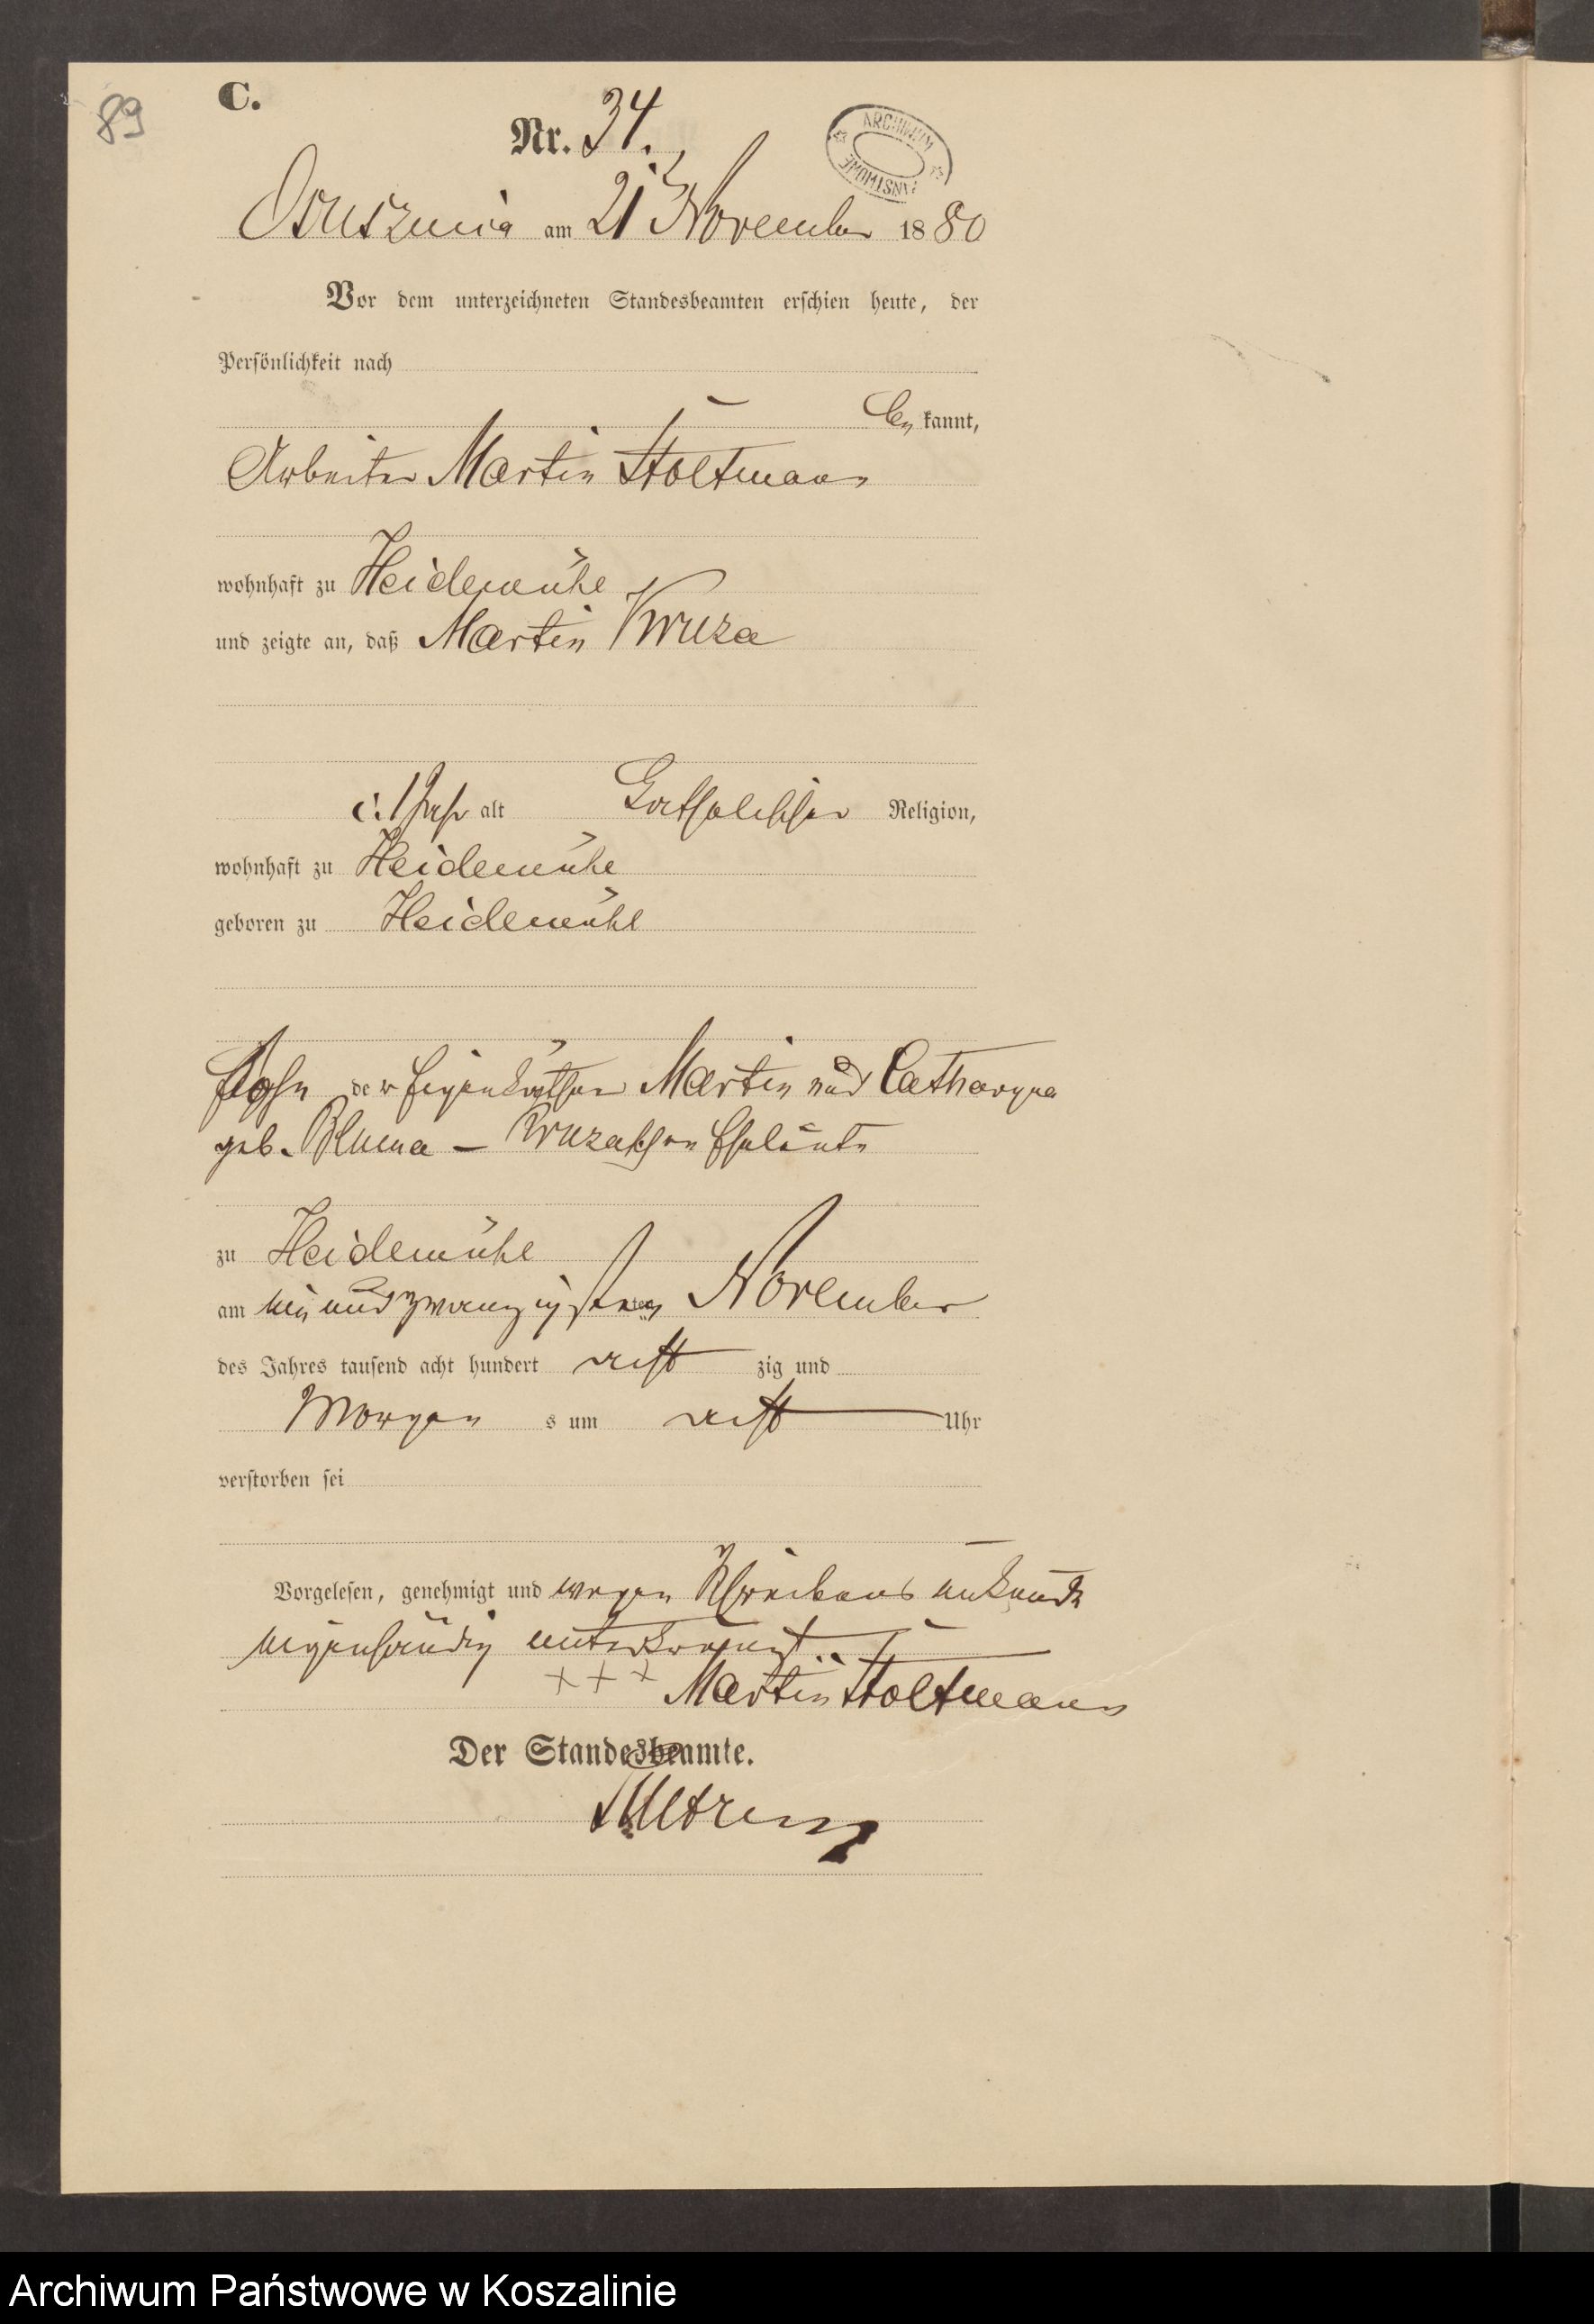 89
C.
Nr. 34.
ARCHIWUM PAŃSTWOWE
Ossusznica am 21 November 1880
Vor dem unterzeichneten Standesbeamten erschien heute, der
Persönlichkeit nach
be kannt,
Arbeiter Martin Stoltmann
wohnhaft zu Heidemühl
und zeigte an, daß Martin Wruza
1 Jahr alt katholischer Religion,
wohnhaft zu Heidemühl
geboren zu Heidemühl
Sohn der Eigenkäthner Martin und Catharyna
geb. Bluma – Wruzaschen Eheleute
zu Heidemühl
am einundzwanzigsten November
des Jahres tausend acht hundert acht zig und
Morgen s um acht Uhr
verstorben sei
Vorgelesen, genehmigt und wegen Schreibens unkunde
eigenhändig unterkreuzt
+ + + Martin Stoltmann
Der Standesbeamte.
Archiwum Państwowe w Koszalinie